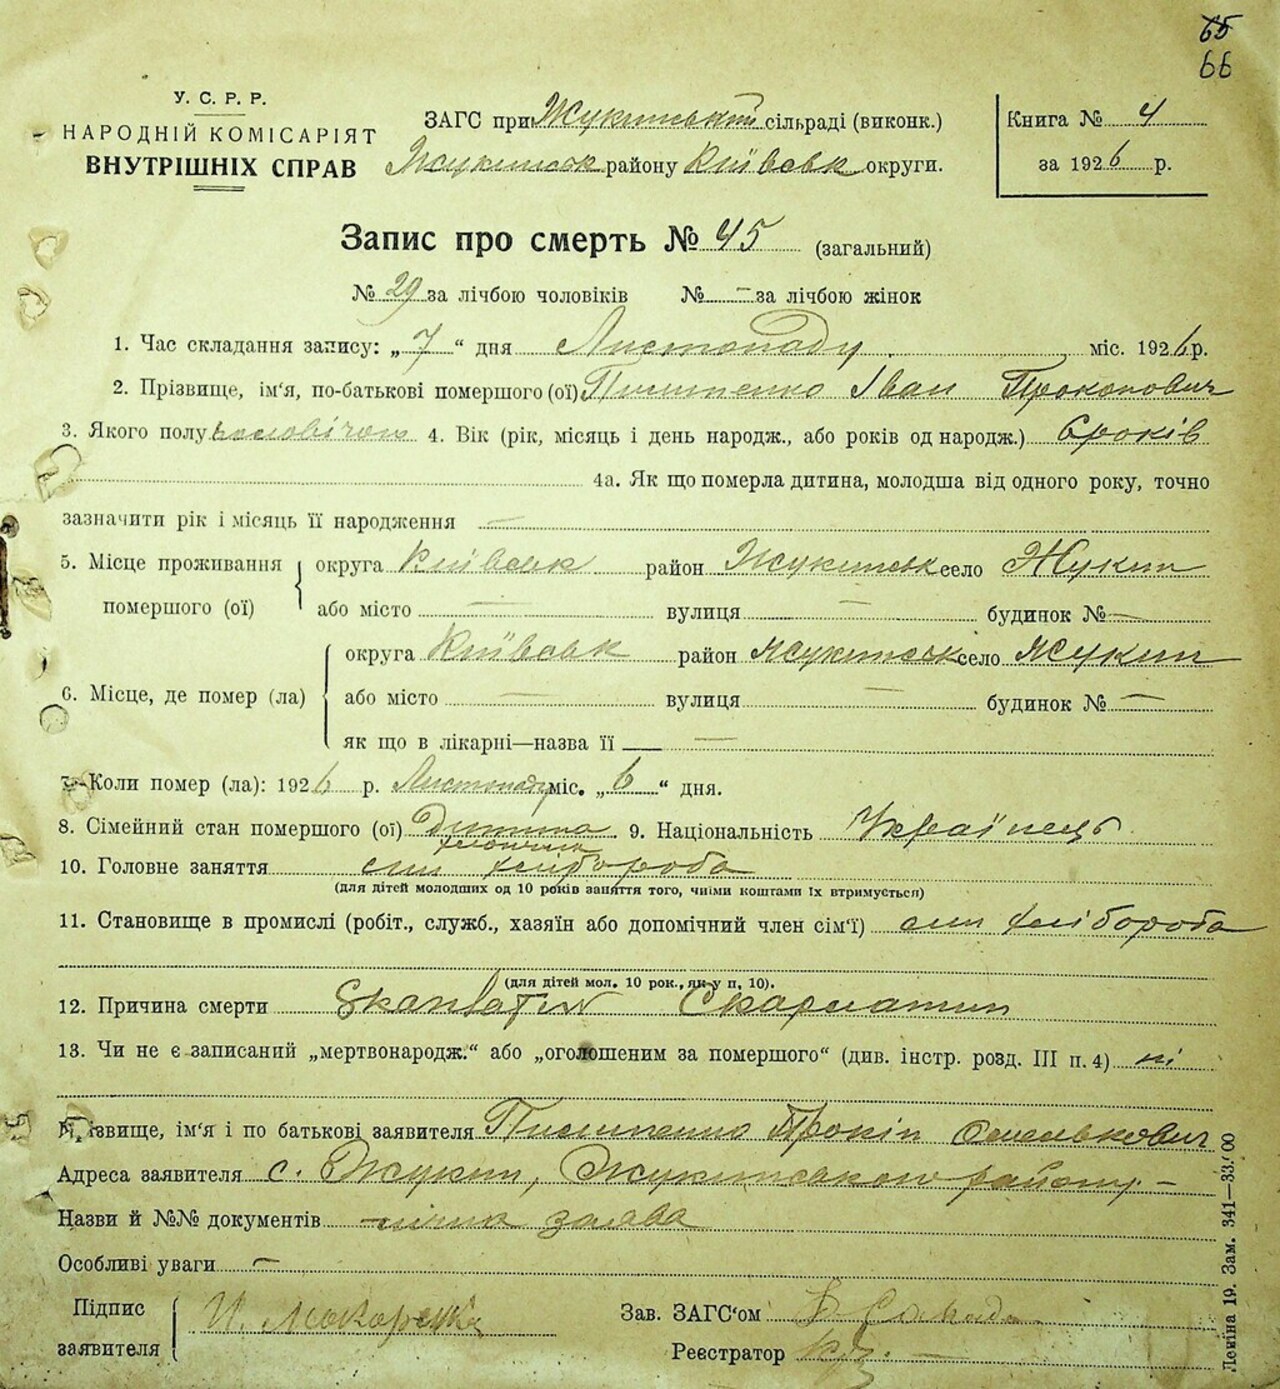 65
66
У. С. Р. Р.
НАРОДНІЙ КОМІСАРІЯТ
ВНУТРІШНІХ СПРАВ
ЗАГС при Жукинський сільраді (виконк.)
Жукинськ району Київськ округи.
Книга № 4
за 1926 р.
Запис про смерть № 45 (загальний)
№ 29 за лічбою чоловіків № — за лічбою жінок
1. Час складання запису: „7“ дня Листопаду міс. 1926 р.
2. Прізвище, ім'я, по-батькові помершого (ої) Іван Прокопович
3. Якого полу чоловічого 4. Вік (рік, місяць і день народж., або років од народж.) 6 років
4а. Як що померла дитина, молодша від одного року, точно
зазначити рік і місяць її народження —
5. Місце проживання помершого (ої)
округа Київськ район Жукинськ село Жукин
або місто — вулиця — будинок № —
6. Місце, де помер (ла)
округа Київськ район Жукинськ село Жукин
або місто — вулиця — будинок № —
як що в лікарні—назва її —
7. Коли помер (ла): 1926 р. Листопаду міс. „6“ дня.
8. Сімейний стан помершого (ої) Дитина 9. Національність Українець
10. Головне заняття син хлібороба
(для дітей молодших од 10 років заняття того, чиїми коштами їх втримується)
11. Становище в промислі (робіт., служб., хазяїн або допомічний член сім'ї) син хлібороба
(для дітей мол. 10 рок., як у п. 10).
12. Причина смерти Скарлатин
13. Чи не є записаний „мертвонародж.“ або „оголошеним за помершого“ (див. інстр. розд. III п. 4) ні
Прізвище, ім'я і по батькові заявителя Прокіп Омелькович
Адреса заявителя с. Жукин, Жукинського району —
Назви й №№ документів заява
Особливі уваги —
Підпис заявителя
Зав. ЗАГС'ом
Реєстратор
Леніна 19. Зам. 341—33.000